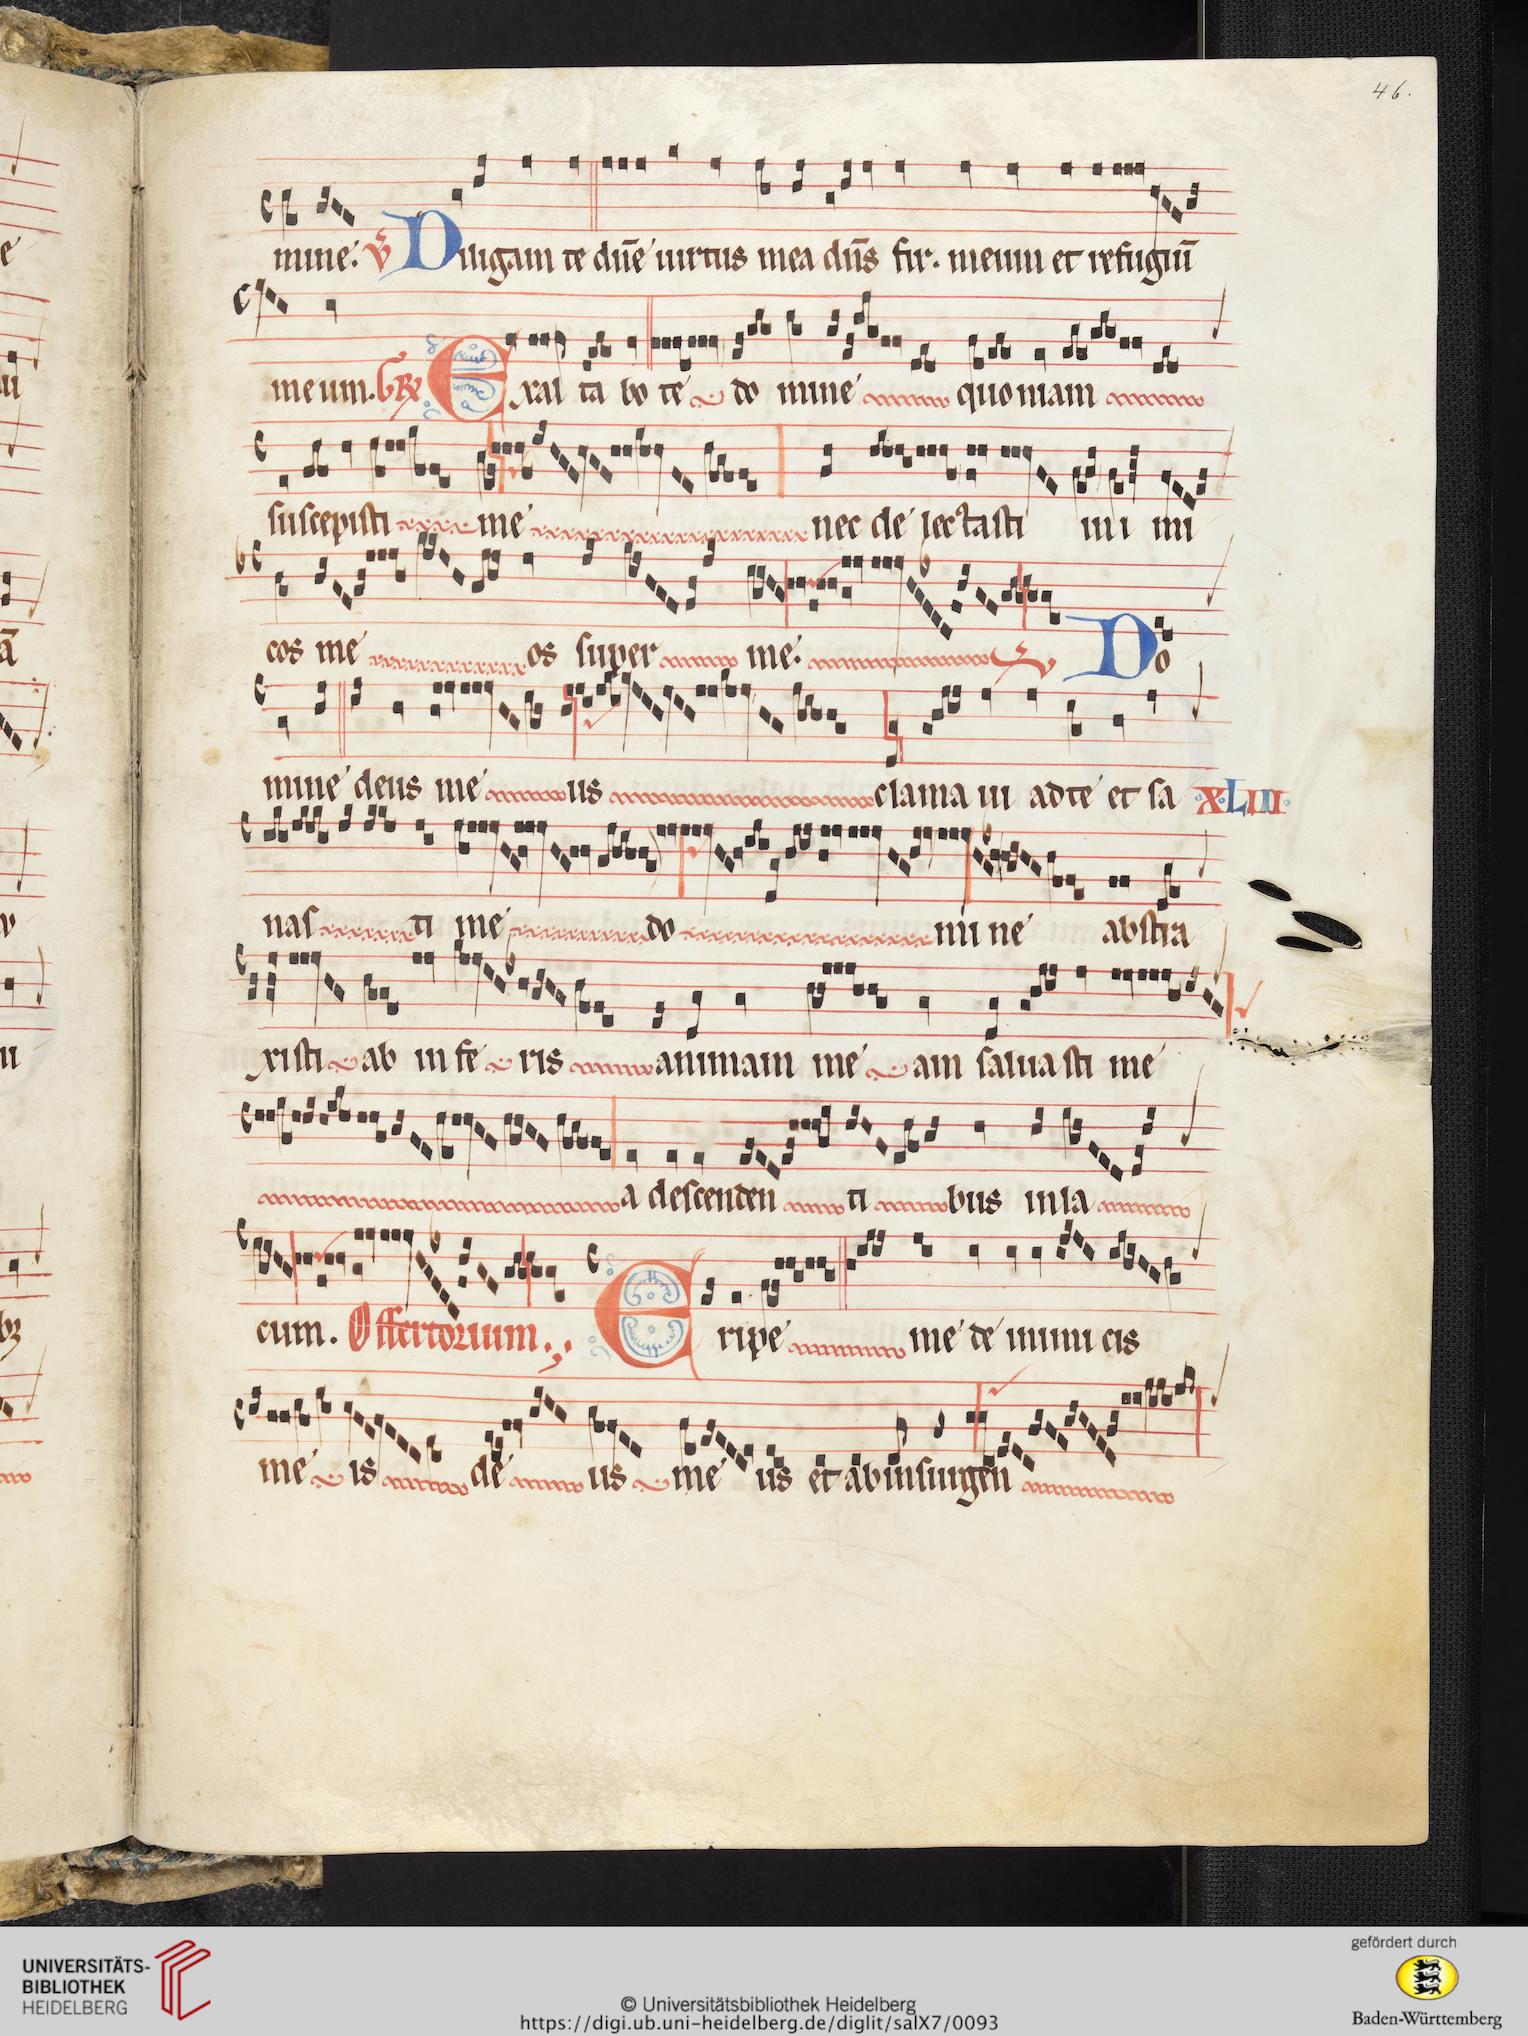 46.
mine. V Diligam te dn̄e uirtus mea dn̄s fir. meum et refugiū
meum. Exal ta bo te do mine quoniam
suscepisti me nec de lectasti ini mi
cos me os super me. V Do
mine deus me us clama ui ad te et sa XLIII
nas ti me do mi ne abstra
xisti ab in fe ris animam me am saluasti me
a descenden ti bus in la
cum. Offertorium. Eripe me de inimi cis
me is de us me us et ab insurgen
UNIVERSITÄTS-
BIBLIOTHEK
HEIDELBERG
© Universitätsbibliothek Heidelberg
https://digi.ub.uni-heidelberg.de/diglit/salX7/0093
gefördert durch
Baden-Württemberg